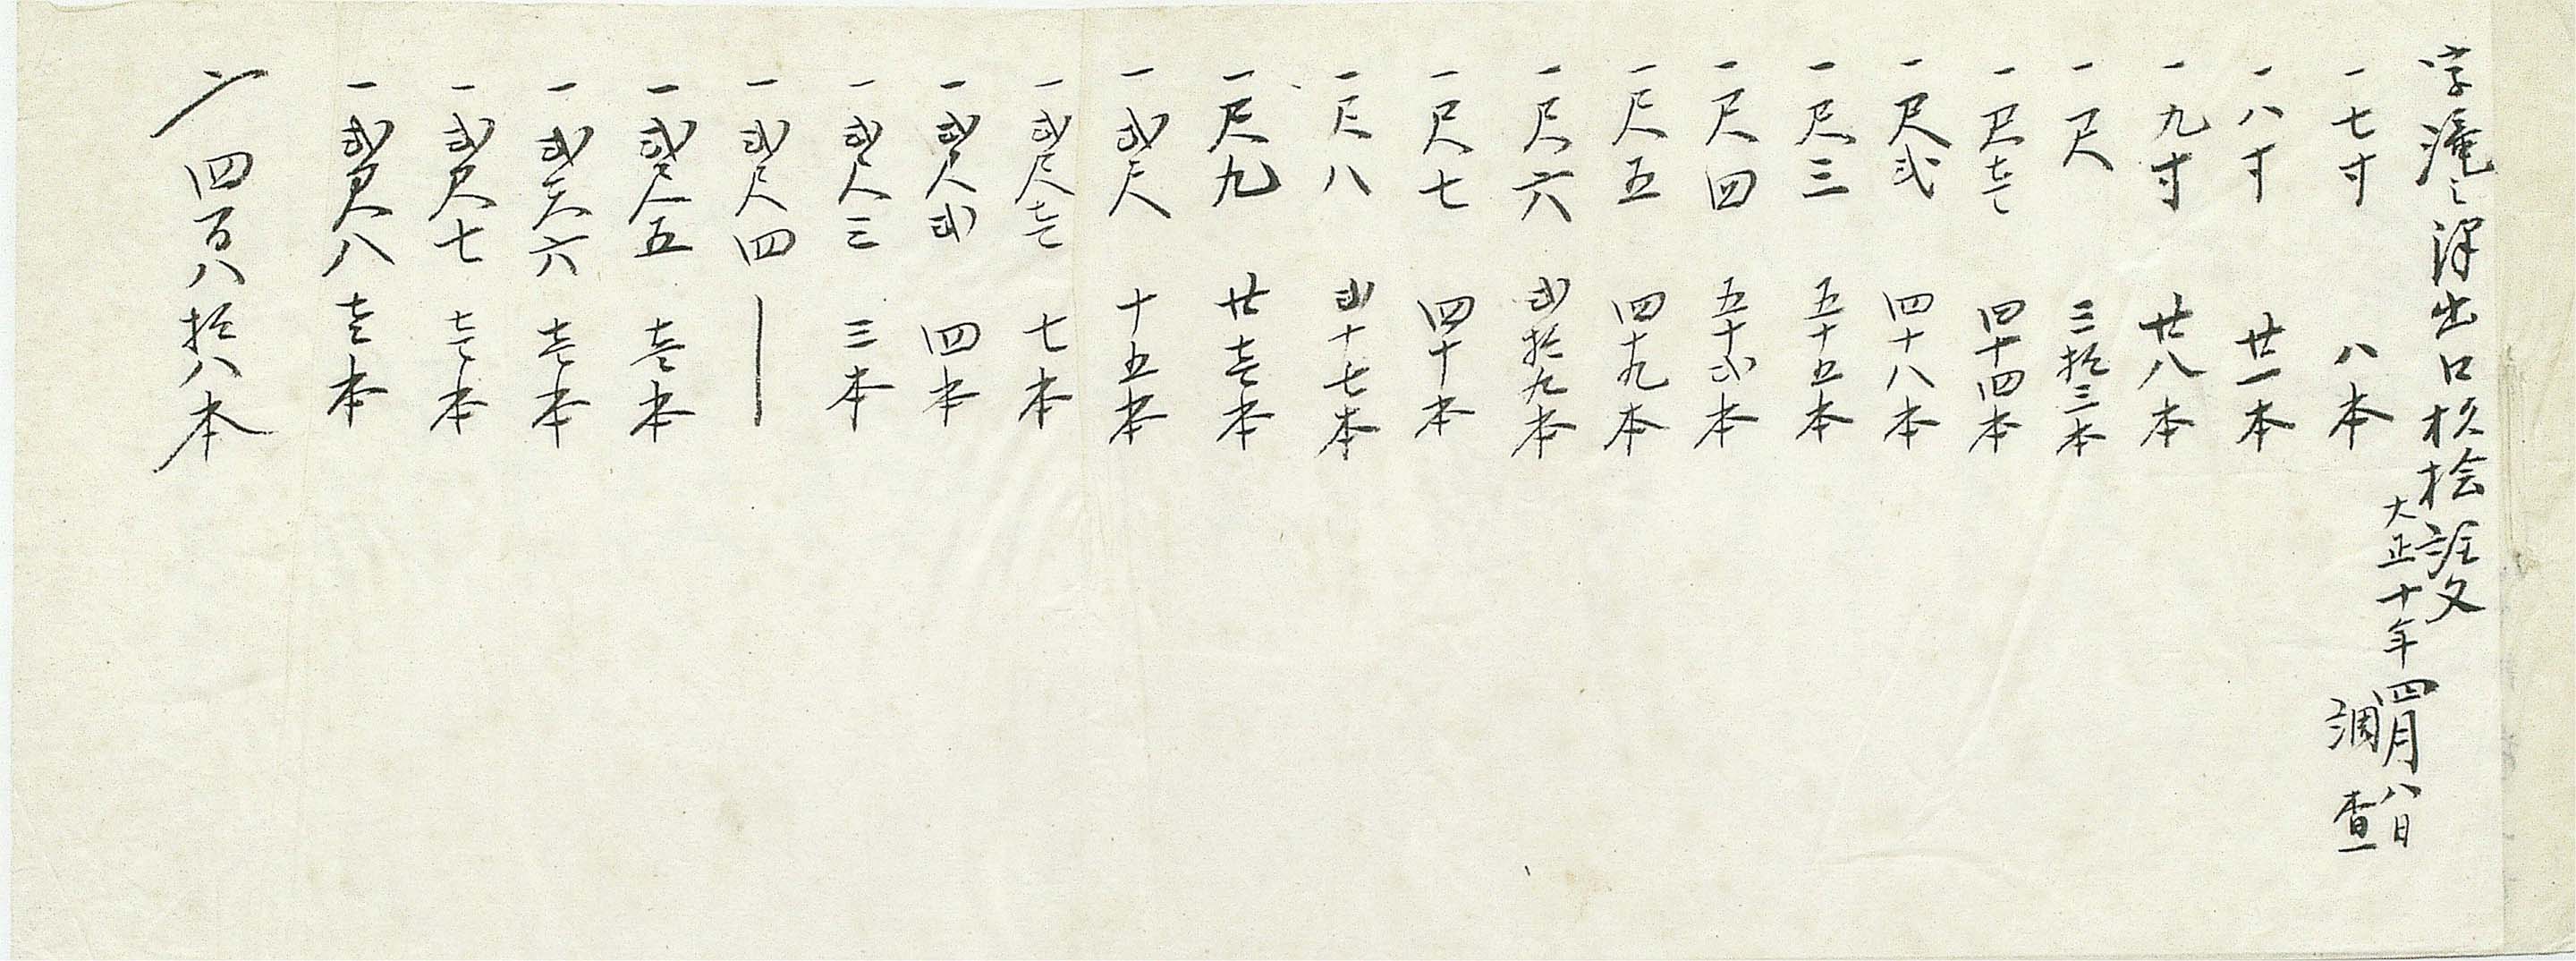 字滝之沢出口杉桧証文
大正十年四月八日
調査
一七寸 八本
一八寸 廿一本
一九寸 廿八本
一尺 三拾三本
一尺壱 四十四本
一尺弐 四十八本
一尺三 五十五本
一尺四 五十弐本
一尺五 四十九本
一尺六 弐拾九本
一尺七 四十本
一尺八 弐十七本
一尺九 廿壱本
一弐尺 十五本
一弐尺壱 七本
一弐尺弐 四本
一弐尺三 三本
一弐尺四 ｜
一弐尺五 壱本
一弐尺六 壱本
一弐尺七 壱本
一弐尺八 壱本
〆四百八拾八本